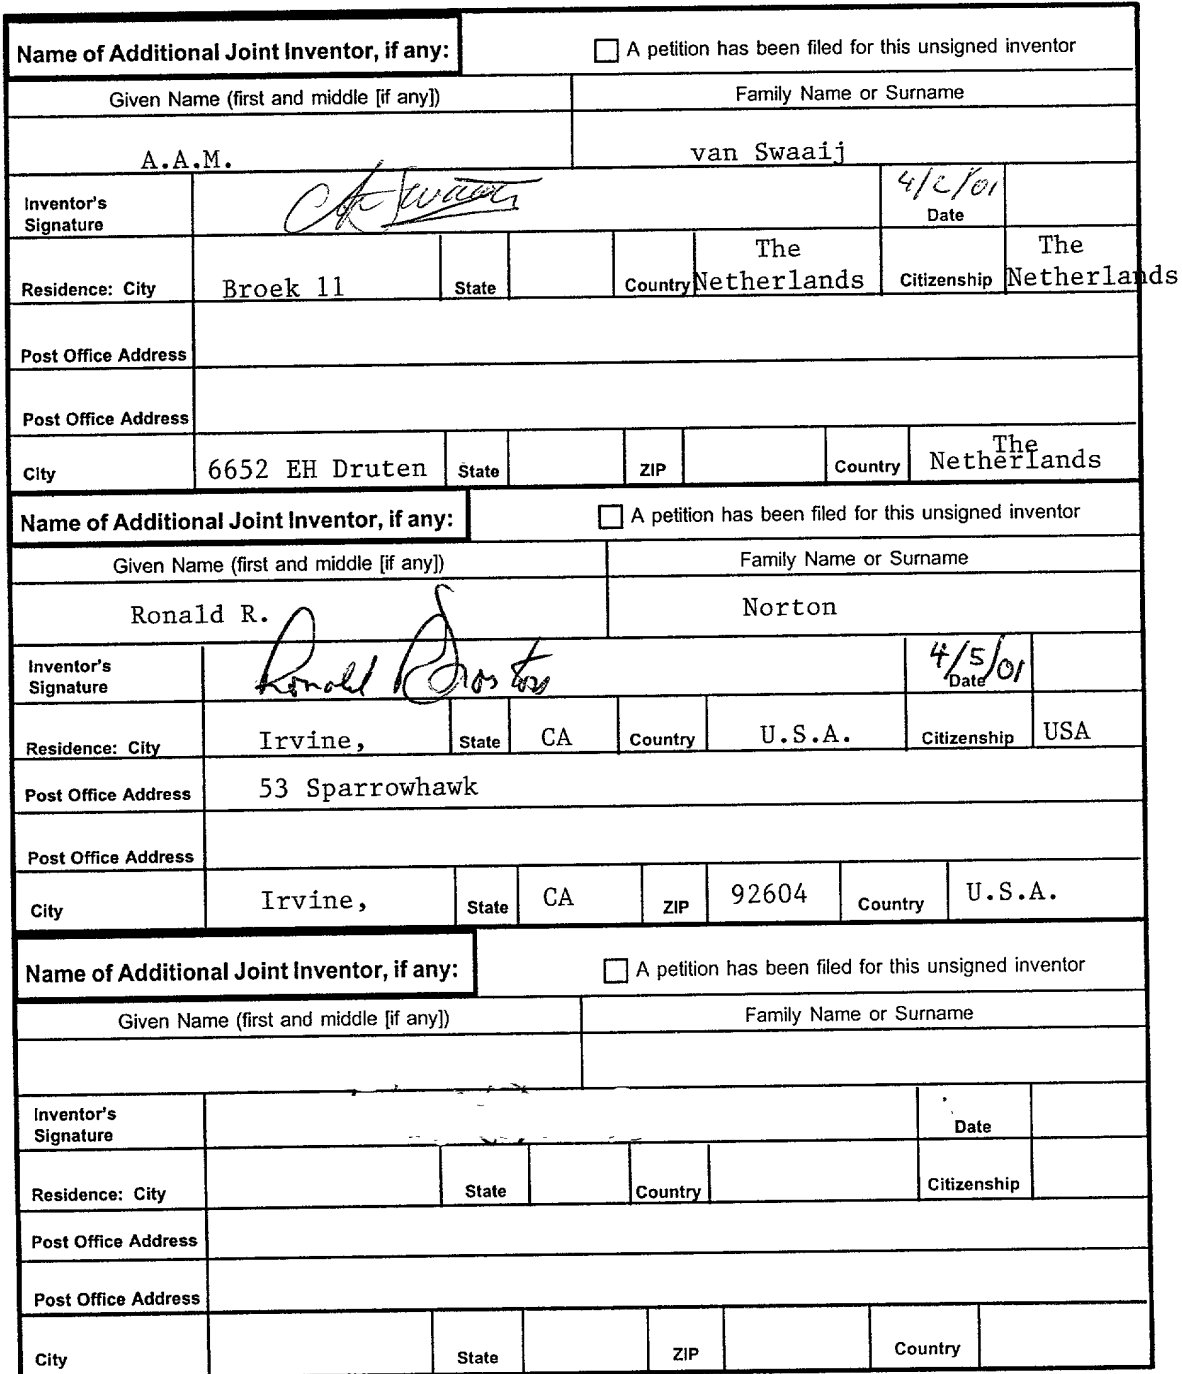 Name of Additional Joint Inventor, if any: A petition has been filed for this unsigned inventor
Given Name (first and middle [if any]) Family Name or Surname
A.A.M. van Swaaij
Inventor's Signature 4/2/01 Date
Residence: City Broek 11 State Country The Netherlands Citizenship The Netherlands
Post Office Address
Post Office Address
City 6652 EH Druten State ZIP Country The Netherlands
Name of Additional Joint Inventor, if any: A petition has been filed for this unsigned inventor
Given Name (first and middle [if any]) Family Name or Surname
Ronald R. Norton
Inventor's Signature Ronald R Norton 4/5/01 Date
Residence: City Irvine, State CA Country U.S.A. Citizenship USA
Post Office Address 53 Sparrowhawk
Post Office Address
City Irvine, State CA ZIP 92604 Country U.S.A.
Name of Additional Joint Inventor, if any: A petition has been filed for this unsigned inventor
Given Name (first and middle [if any]) Family Name or Surname
Inventor's Signature Date
Residence: City State Country Citizenship
Post Office Address
Post Office Address
City State ZIP Country